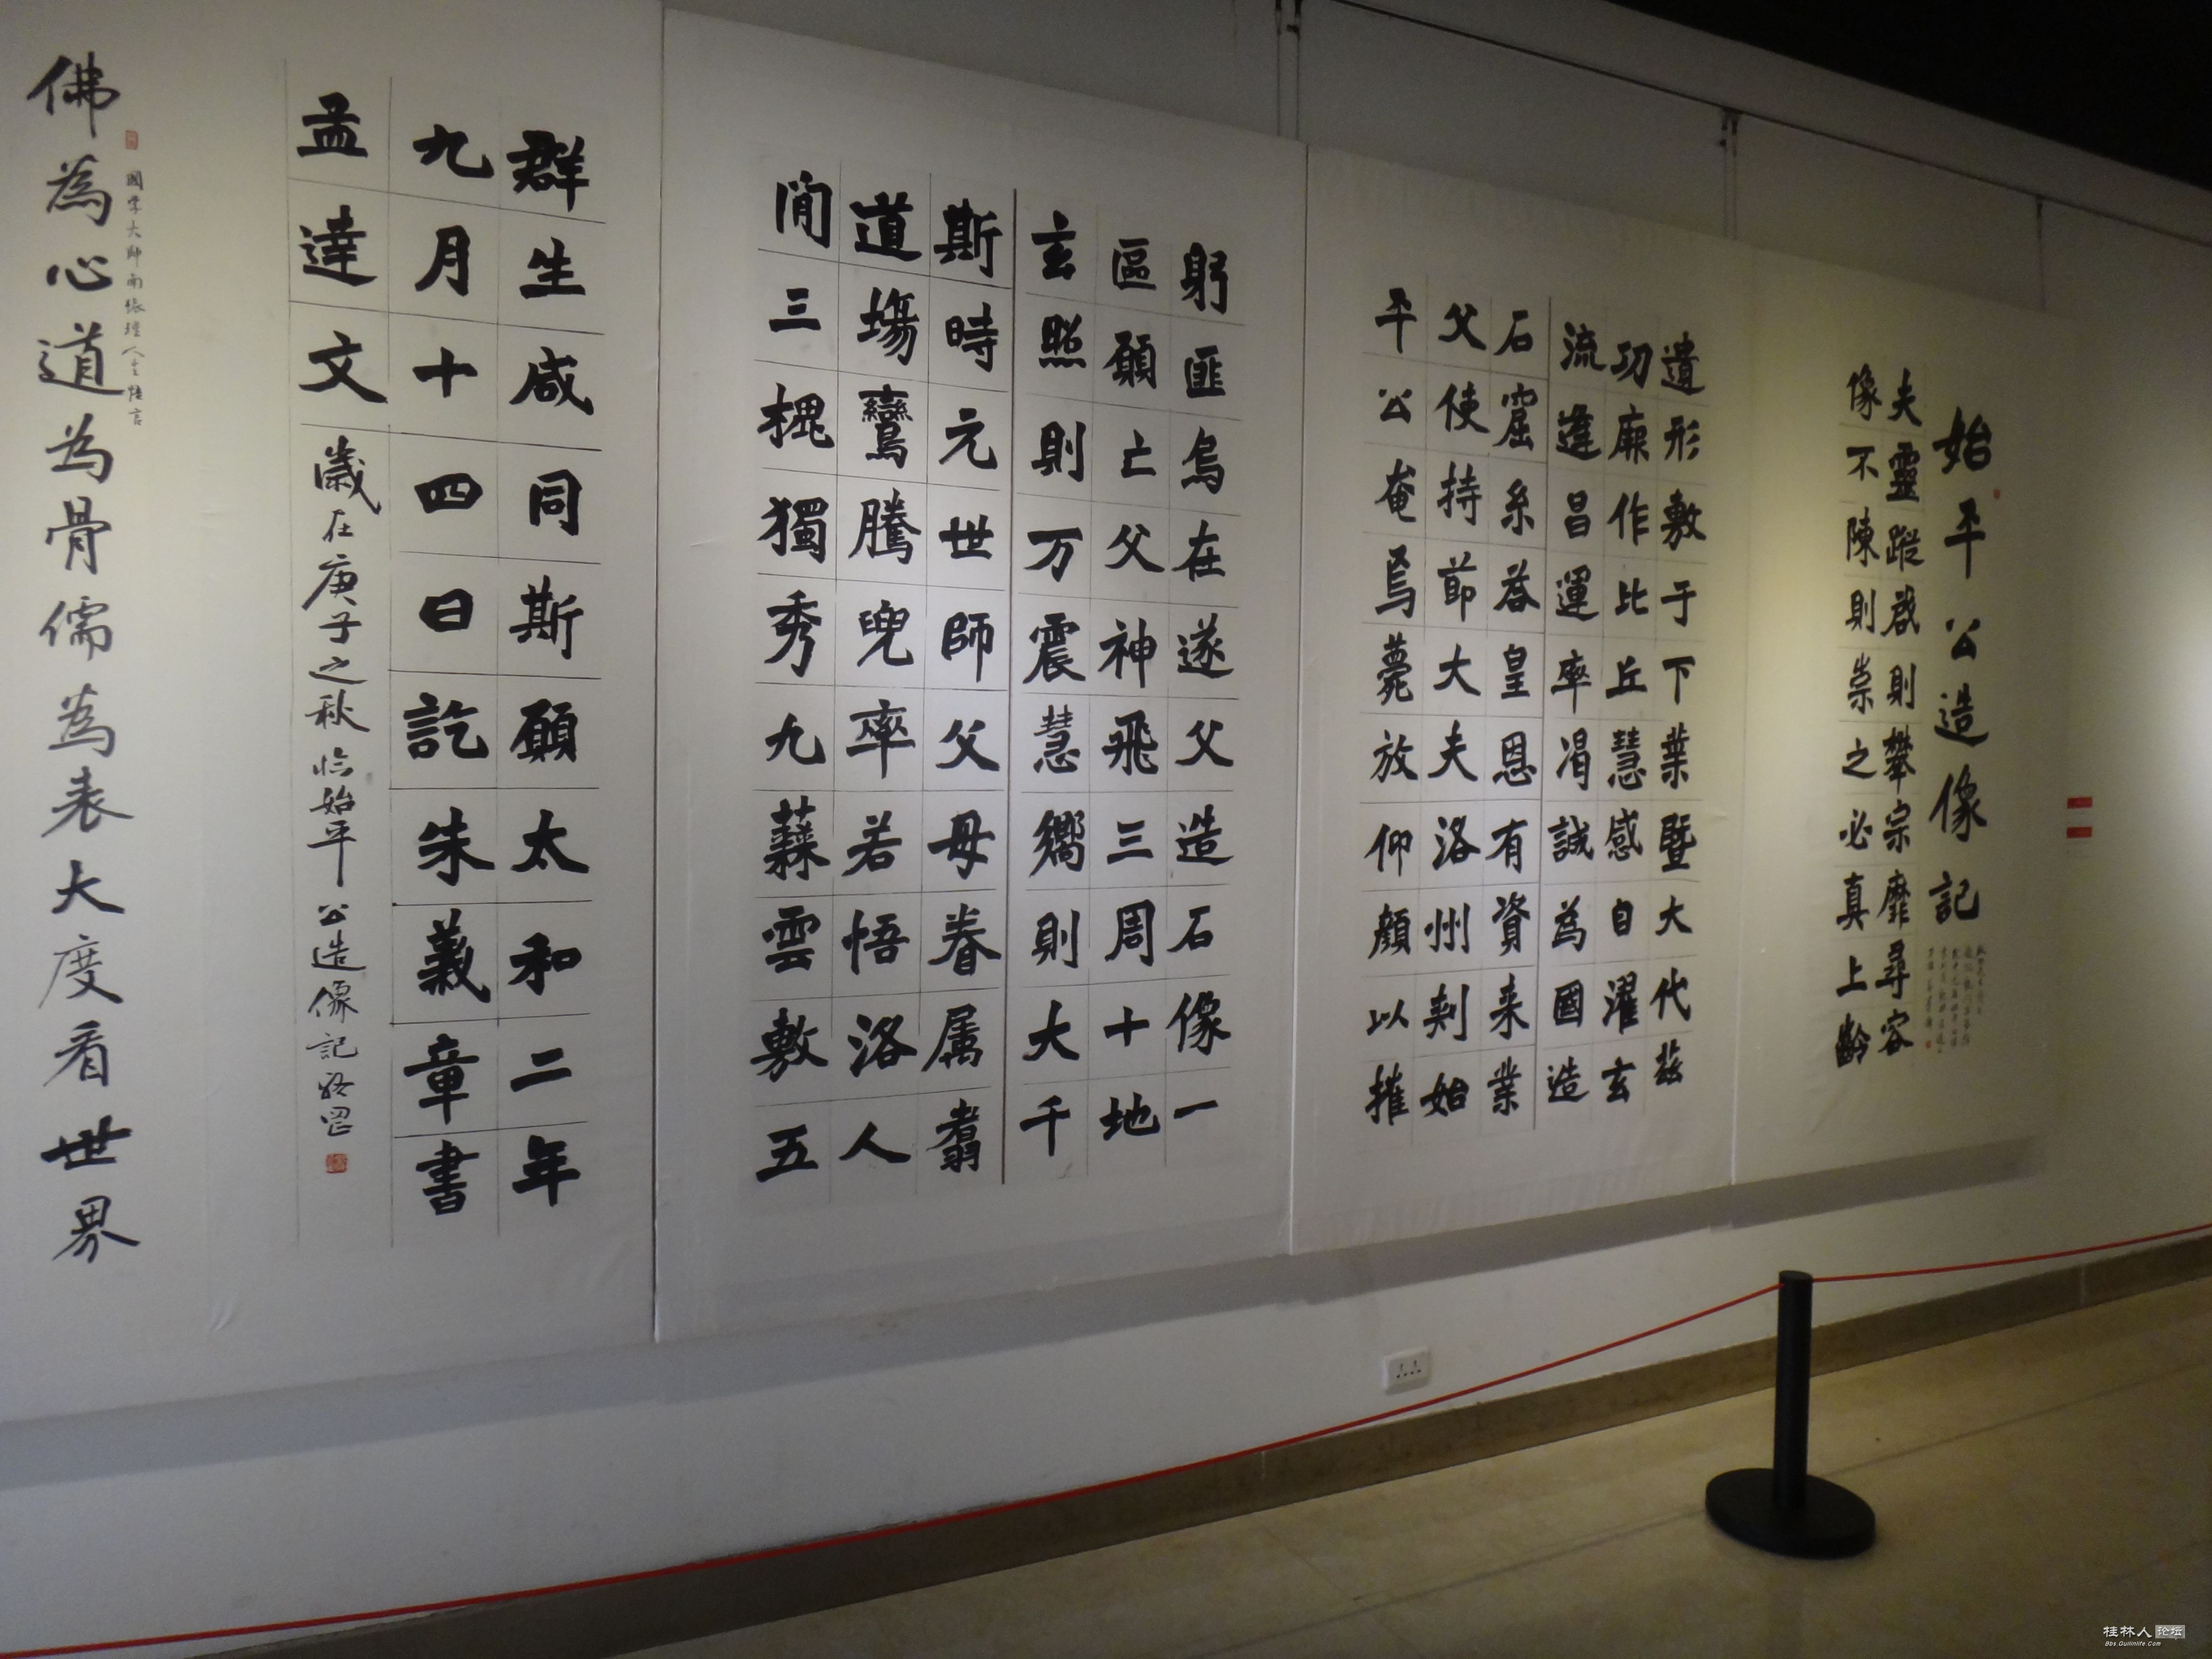 始平公造像記
夫靈蹤啟則攀宗靡尋容
像不陳則崇之必真上齡
遺形敷于下葉暨大代茲
功厥作比丘慧感自濯玄
流逢昌運率渴誠為國造
石窟系荅皇恩有資来業
父使持節大夫洛州刾始
平公奄焉薨放仰顏以摧
躬匪烏在遂父造石像一
區願亡父神飛三周十地
玄照則万震慧嚮則大千
斯時元世師父母眷属鳳翥
道場鸞騰兜率若悟洛人
閒三槐獨秀九蕀雲敷五
群生咸同斯願太和二年
九月十四日訖朱義章書
孟達文
歲在庚子之秋臨始平公造像記
國學大師南懷瑾人生格言
佛為心道為骨儒為表大度看世界
桂林人论坛
Bbs.Guilinlife.Com